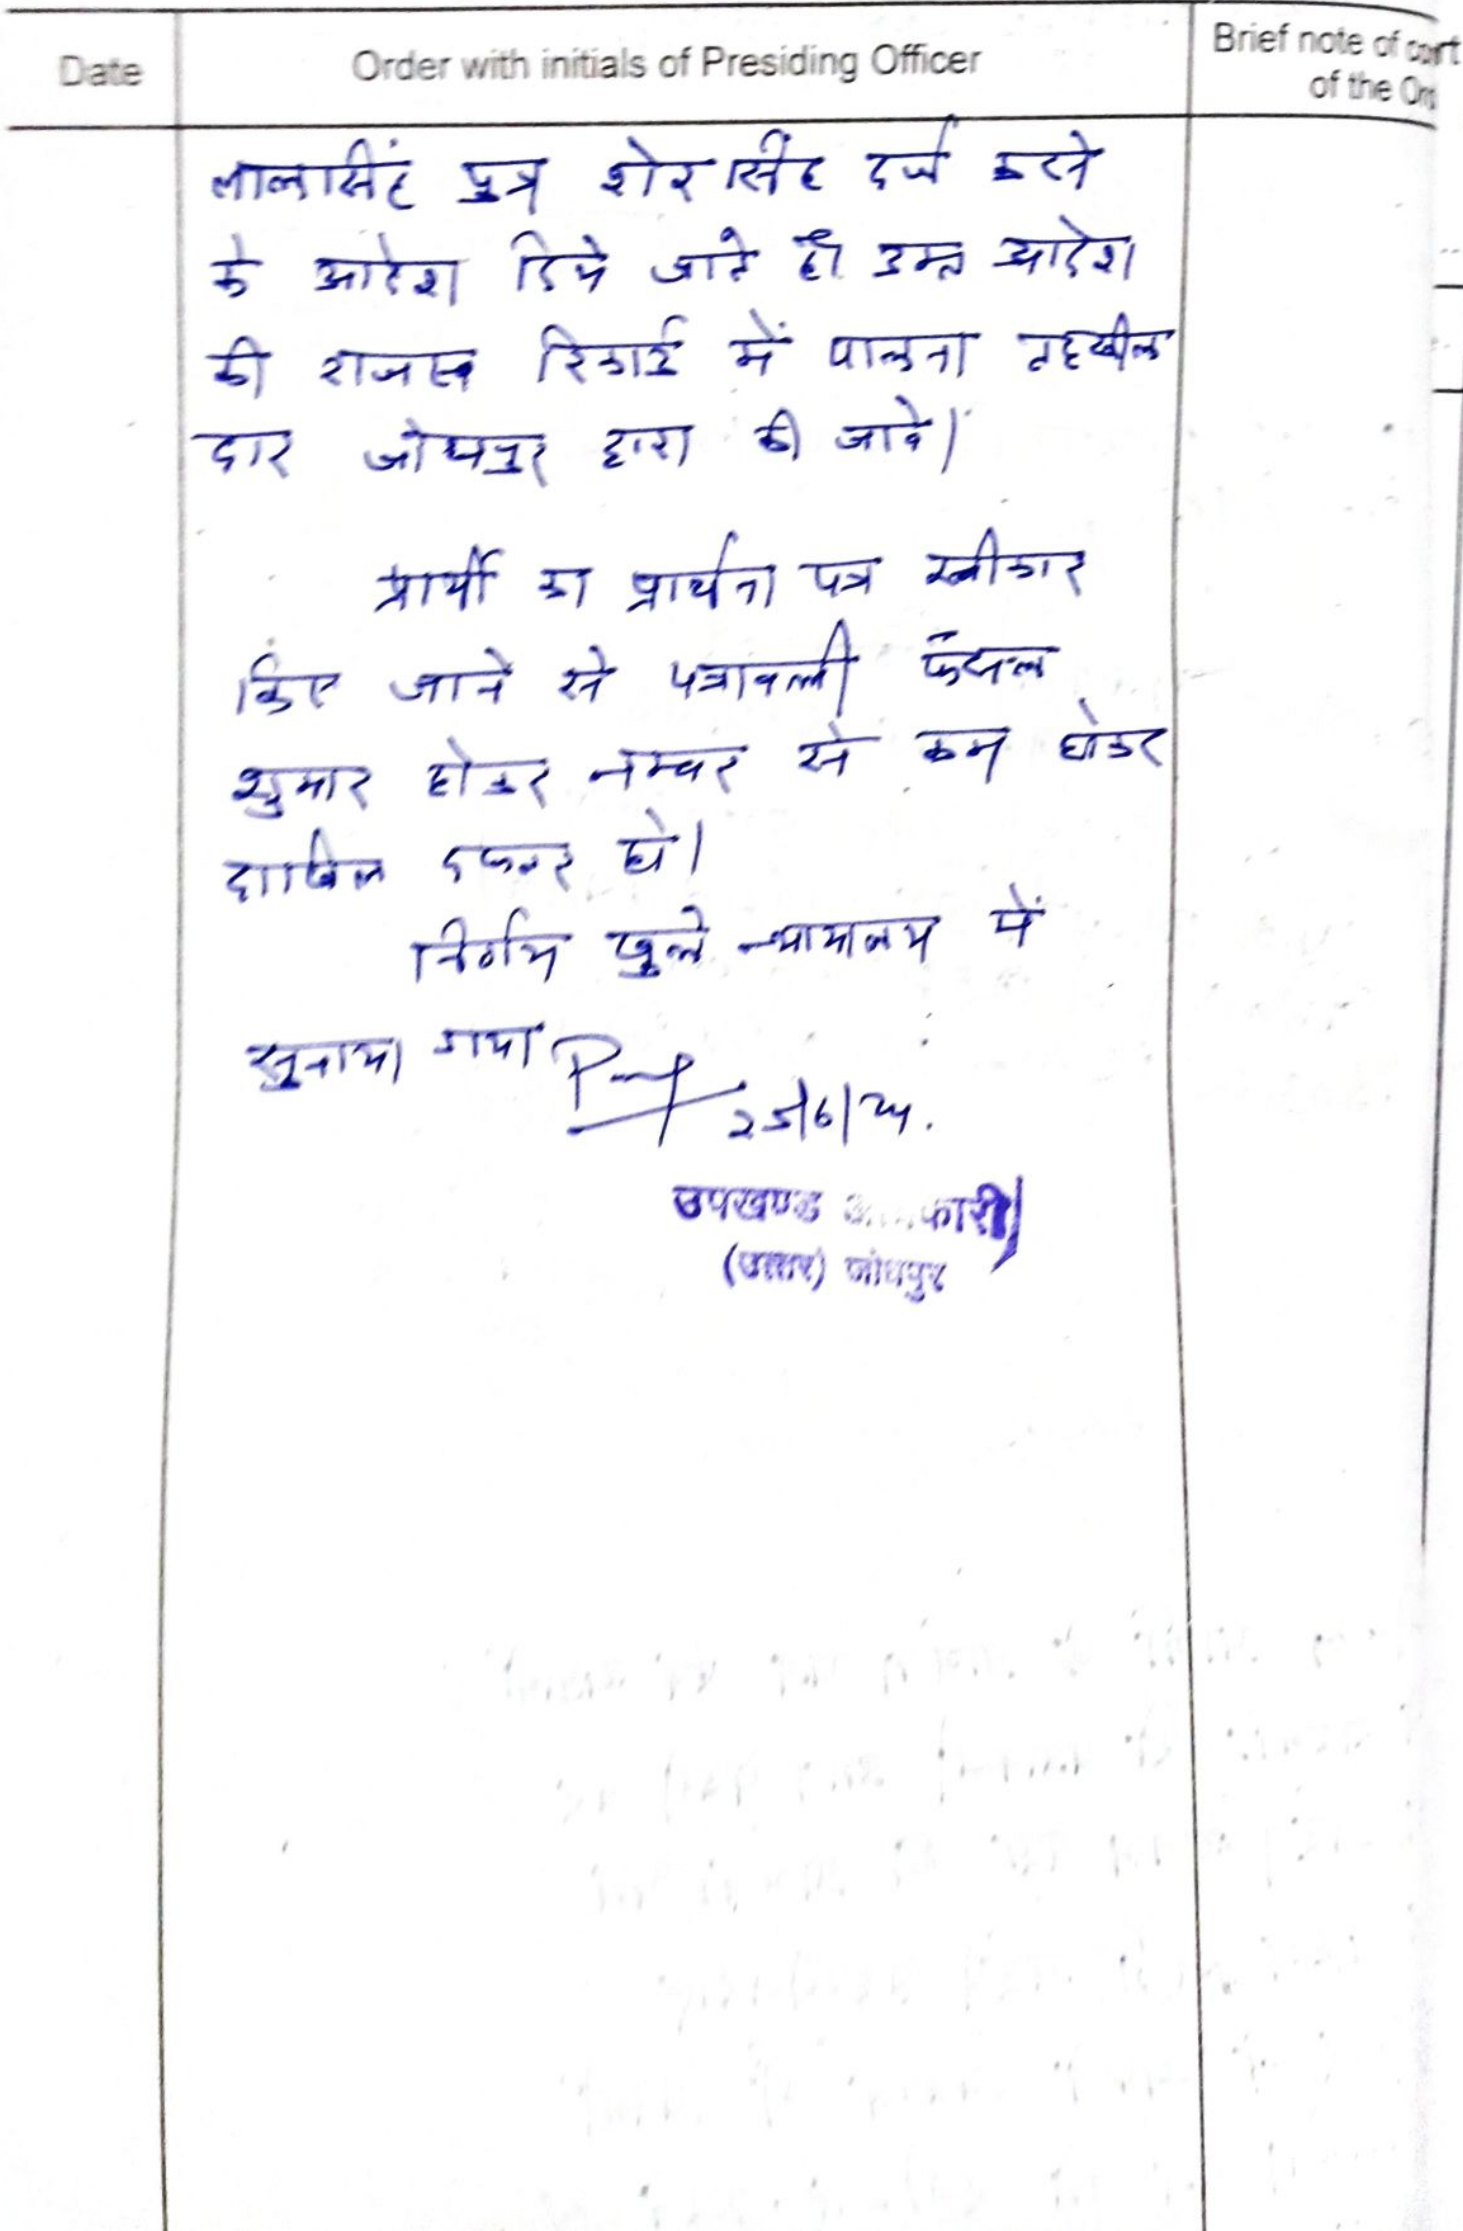 Date
Order with initials of Presiding Officer
Brief note of
of the
लालसिंह पुत्र शेरसिंह दर्ज करने
के आदेश दिये जाते है। उक्त आदेश
की राजस्व रिकार्ड में पालना तहसील
दार जोधपुर द्वारा की जावे।
प्रार्थी का प्रार्थना पत्र स्वीकार
किए जाने से पत्रावली फैसल
शुमार होकर नम्बर से कम होकर
दाखिल दफ्तर हो।
निर्णय खुले न्यायालय में
सुनाया गया
25/6/24.
उपखण्ड
(उत्तर) जोधपुर